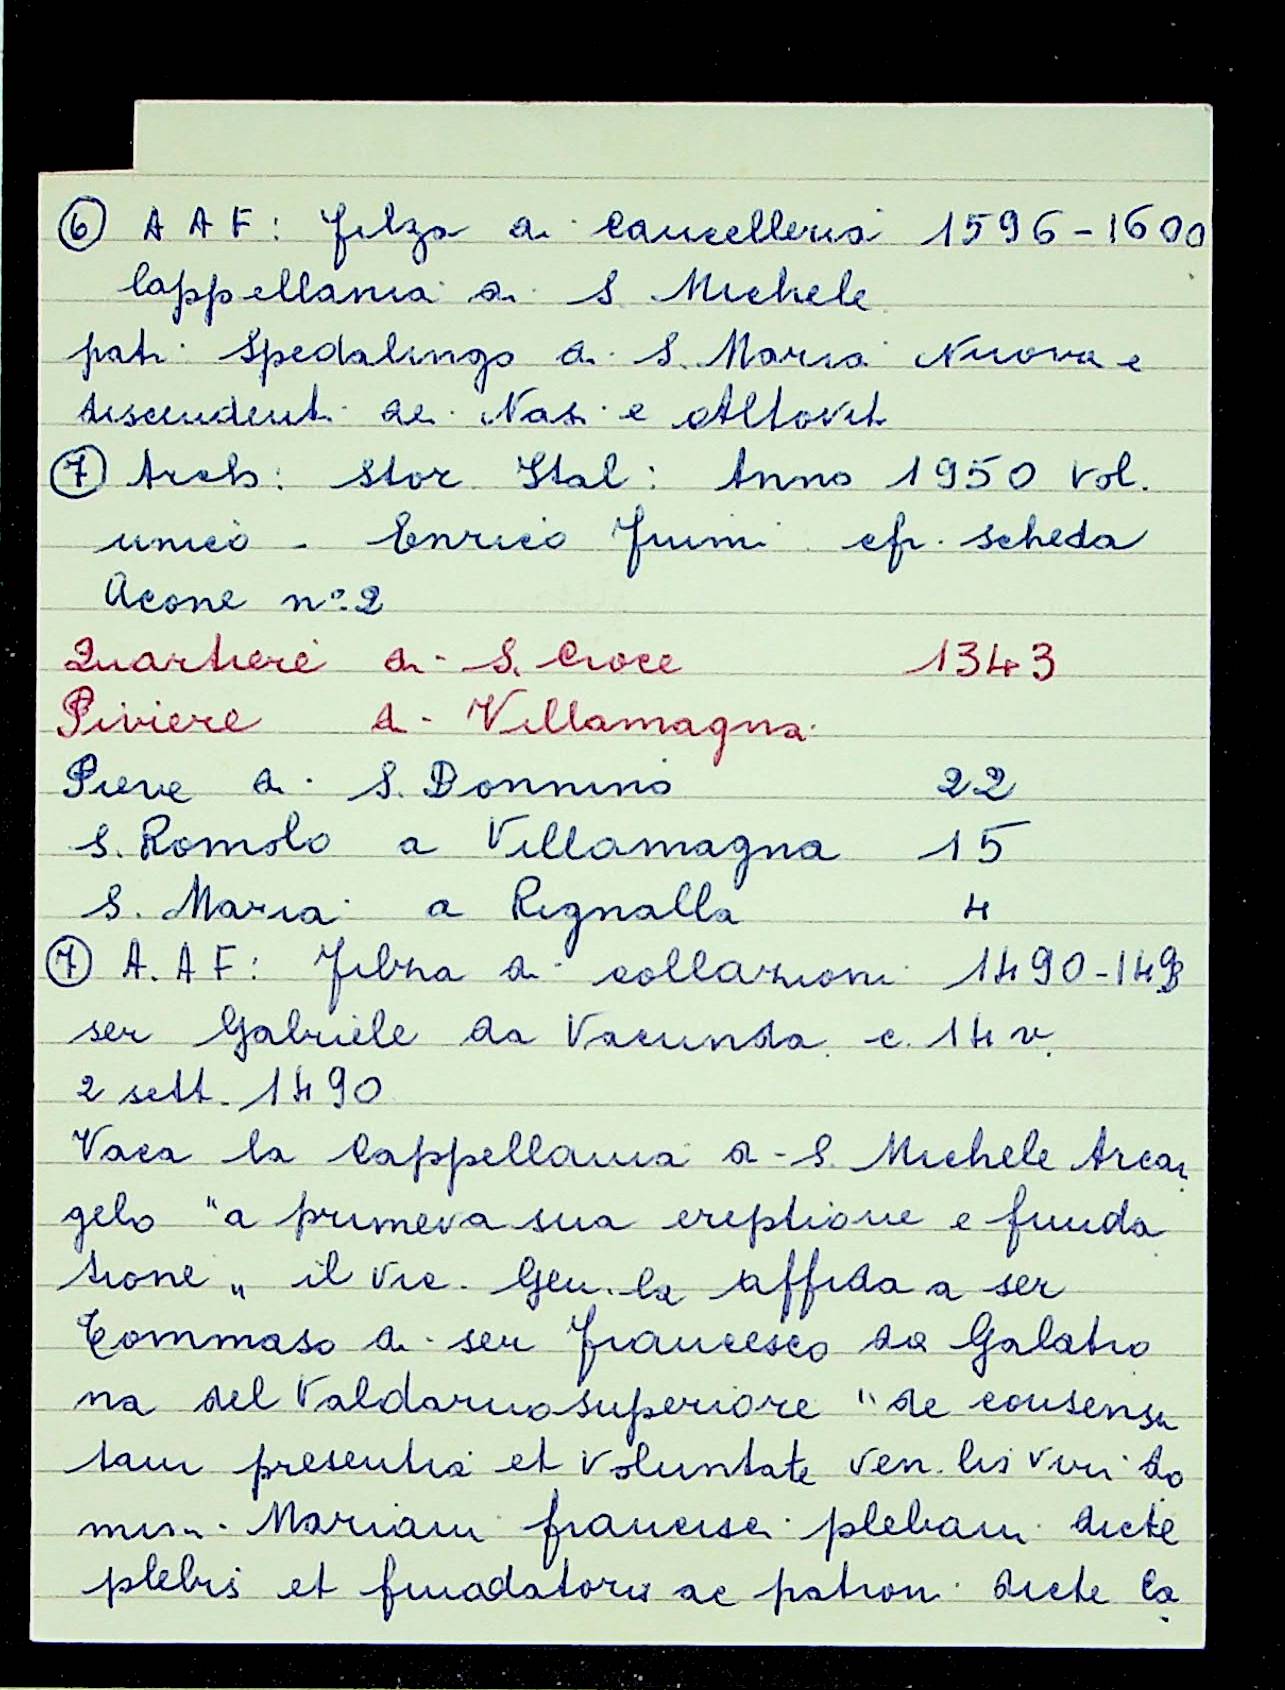 ⑥ A A F: Filza di Cancelleria 1596-1600
Cappellania di S. Michele
patr. Spedalingo di S. Maria Nuova e
discendenti dei Nasi e Altoviti
⑦ Arch: Stor. Ital: Anno 1950 Vol.
unico - Enrico Fiumi cfr. scheda
Acone n° 2
Quartiere di S. Croce 1343
Piviere di Villamagna
Pieve di S. Donnino 22
S. Romolo a Villamagna 15
S. Maria a Rignalla 4
⑦ A. A F: Filza di collazioni 1490-149
ser Gabriele da Vacunda c. 14 v.
2 sett. 1490
Vaca la Cappellania di S. Michele Arcan
gelo "a primeva sua ereptione e funda
tione" il Vic. Gen. la affida a ser
Tommaso di ser Francesco da Galatro
na del Valdarno superiore "de consensu
tam presentia et voluntate ven. lis viri do
mini Mariani francisci plebani dicte
plebis et fundatoris ac patroni dicte ca